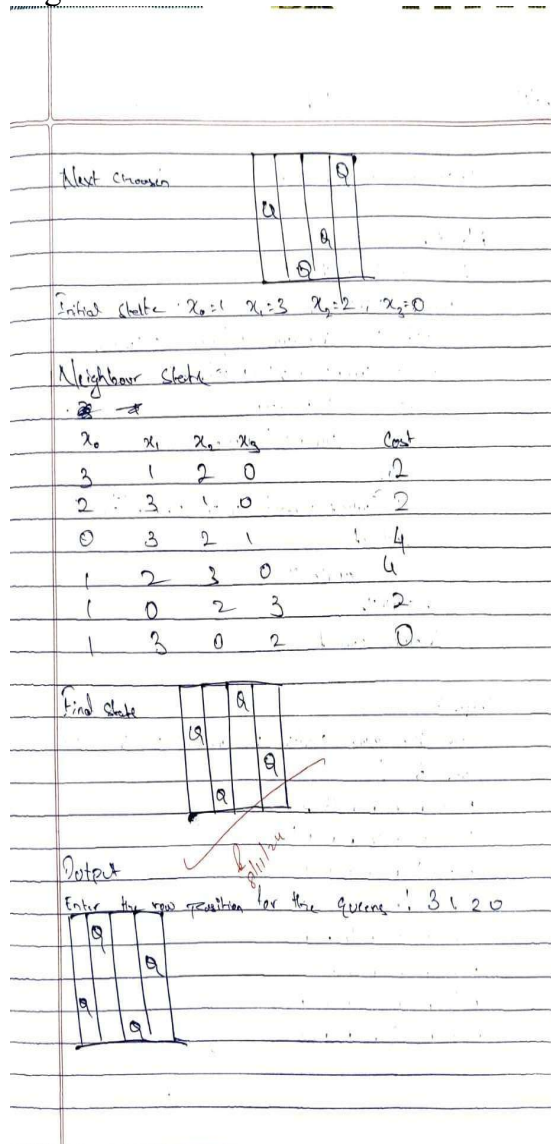 Next Choosen
Q
Q
Q
Q
Initial state x₀=1 x₁=3 x₂=2, x₃=0
Neighbour State
x₀ x₁ x₂ x₃ Cost
3 1 2 0 2
2 3 1 0 2
0 3 2 1 4
1 2 3 0 4
1 0 2 3 2
1 3 0 2 0
Final State
Q
Q
Q
Q
8/11/24
Output
Enter the row position for the queens : 3 1 2 0
Q
Q
Q
Q